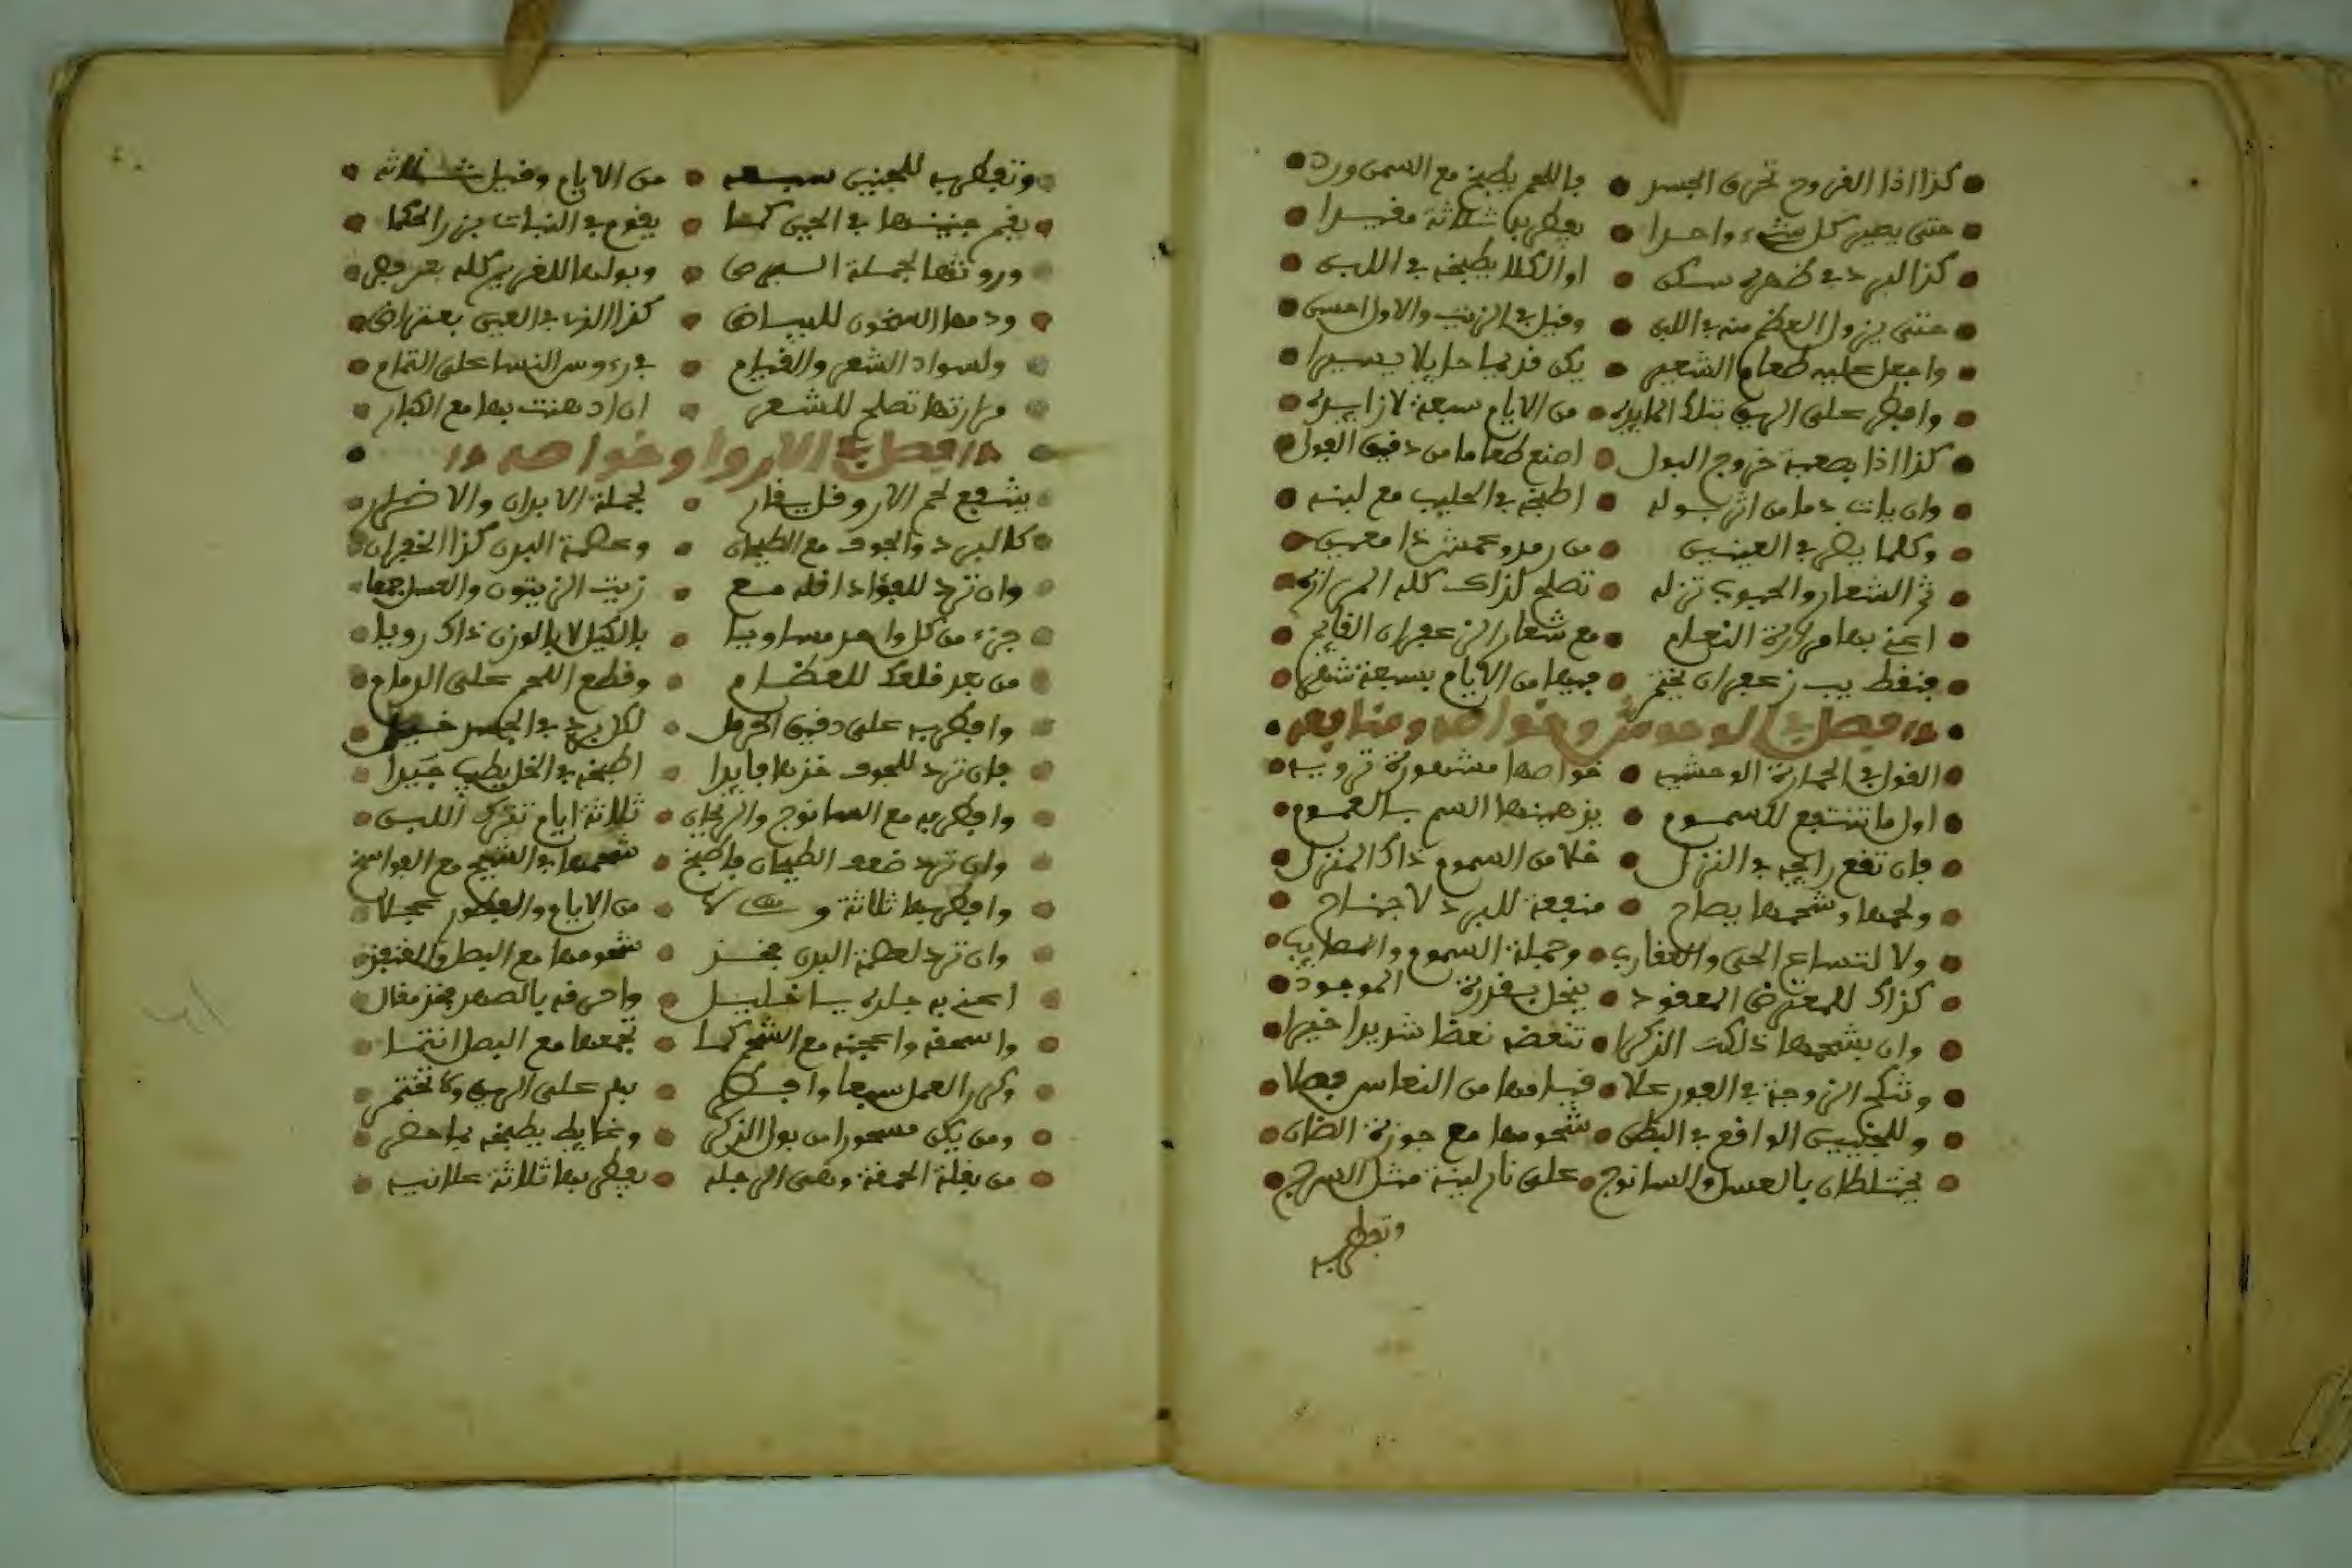 كذا اذا القروح تحرق الجسد • باللحم يطبخ مع السمن ورد
حتى يصير كل شيء واحدا • يفطر بها ثلاثة مفيدا
كذا البرد في ظهره سكن • او الكلا يطبخه في اللبن
حتى يزول العظم منه في اللبن • وقيل في الزيت والاول احسن
واجعل عليه طعام الشعير • يكن قديما حايلا يسيرا
وافطر على الريق بتلك المايده • من الايام سبعة لا زايده
كذا اذا يصعبه خروج البول • اصنع طعاما من دقيق الفول
وان يات دما من اثر بوله • اطبخه في الحليب مع لبنه
وكلما يضر في العينين • من رمد وعمش
ثم الشعار والحبوب تزله • تصلح لذاك كله المراره
اعني بها مرارة النعام • مع شعار الزعفران
فنقط بب زعفران تختم • فيها من الايام بسبعة
فصل في الوحوش وخواصه ومنافعه
القول في الحمارة الوحشيه • خواصها مشهورة ترويه
اول ما تنتفع للسموم • يزهبنها السم بالعموم
فان تقع رايحه في النزل • خلا من السموم ذاك المنزل
ولحمها وشحمها يصاح • منفعة للبرد لا جناح
ولا لتساع الحي والعقارب • وجملة السموم والمصايب
كذاك للمعترض المعقود • ينحل بقدرة الموجود
وان بشحمها ذلكت الذكرا • تنعضه نعضا شديدا
وتنكح الزوجة في الفور علا • قيامها من النعاس فصلا
وللجنين الواقع في البطن • شحومها مع جوزة الضان
يختلطان بالعسل والسانوج • على نار لينة مثل السرج
وتفطر به
وتفطر به للجنين سبعه • من الايام وقيل ثلاثه
يقم جنينها في الحين كما • يقوم في النبات بزر الحكما
وروثها لجملة السهر • وبولها للغدير كله
ودمها السخون للبياض • كذا الذي في العين بعتراض
ولسواد الشعر والقيام • في رءوس النسا على التمام
مرارتها تصلح للشعر • ان ادهنت بها مع الكبار
فصل في الاروا وخواصه
ينفع لحم الاروقل • لجملة الابدان والاضرار
كالبرد والجوف مع الطيحان • وعظمة البدن كذا الخفقان
وان ترد للفؤاد اقله مع • زيت الزيتون والعسل جمعا
جزء من كل واحد مساويا • بالكيل لا بالوزن ذاك رويا
من بعد قلعك للعظام • وقطع اللحم على الدوام
وافطر به على دقيق الحرمل • لكل برد في الجسد
فان ترد للجوف خذها فايدا • اطبخه في الخل يطيب جيدا
وافطر به مع السانوج والريحان • ثلاثة ايام تترك اللبن
وان ترد ضعف الطيحان فاطبخ • شحمها في الشيح مع الفواسخ
وافطر بها ثلاثة و • من الايام والفطور عجلا
وان ترد لعظمة البدن فخذ • شحومها مع البصل
اعني به جلده يا خليل • واحرقه بالصهد فخذ مقال
واسحقه واعجنه مع الشحم كما • تجمعها مع البصل انتما
وكرر العمل سبعا وافطر • به على الريق
ومن يكن مسحورا من بول الذكر • وغايط يطبخه بما حضر
من بقلة الحمقة وهى الرجله • يفطر بها ثلاثة علانيه